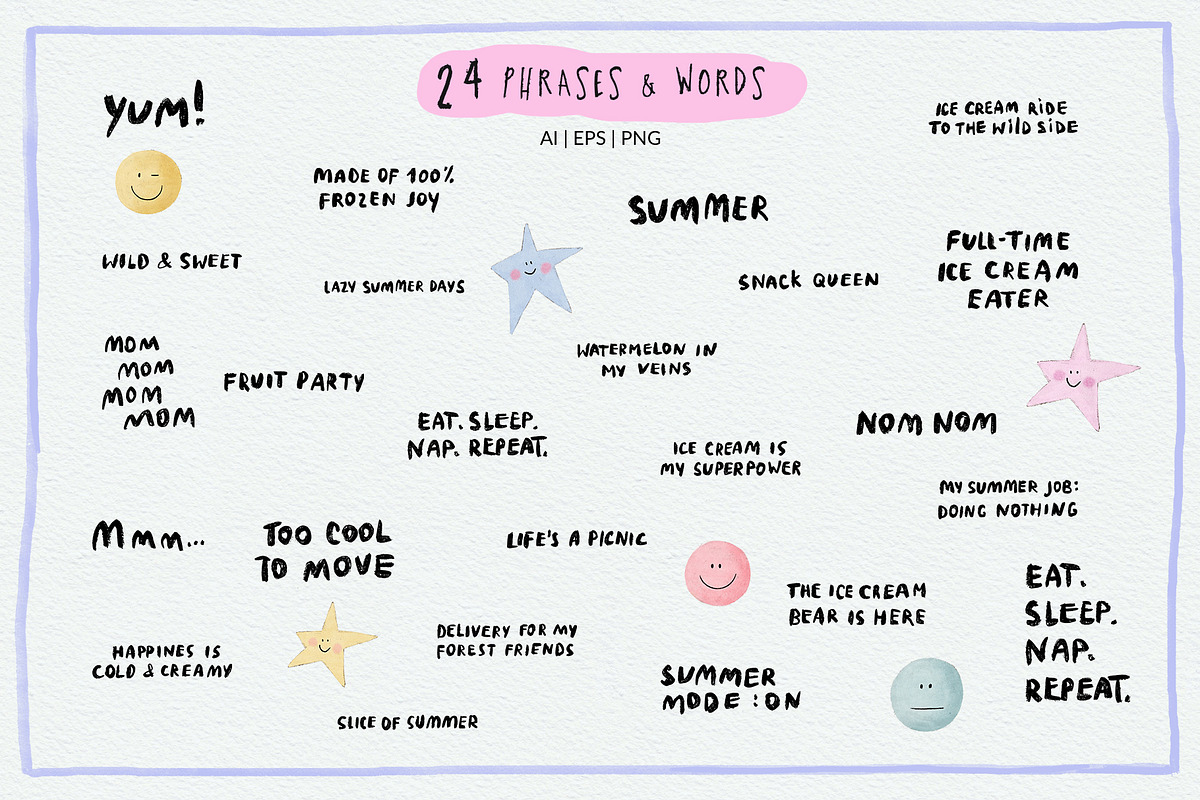 24 PHRASES & WORDS
AI | EPS | PNG
YUM!
ICE CREAM RIDE
TO THE WILD SIDE
MADE OF 100%
FROZEN JOY
SUMMER
WILD & SWEET
LAZY SUMMER DAYS
SNACK QUEEN
FULL-TIME
ICE CREAM
EATER
MOM
MOM
MOM
MOM
FRUIT PARTY
WATERMELON IN
MY VEINS
EAT. SLEEP.
NAP. REPEAT.
ICE CREAM IS
MY SUPERPOWER
NOM NOM
MY SUMMER JOB:
DOING NOTHING
Mmm...
TOO COOL
TO MOVE
LIFE'S A PICNIC
THE ICE CREAM
BEAR IS HERE
EAT.
SLEEP.
NAP.
REPEAT.
HAPPINES IS
COLD & CREAMY
DELIVERY FOR MY
FOREST FRIENDS
SUMMER
MODE : ON
SLICE OF SUMMER